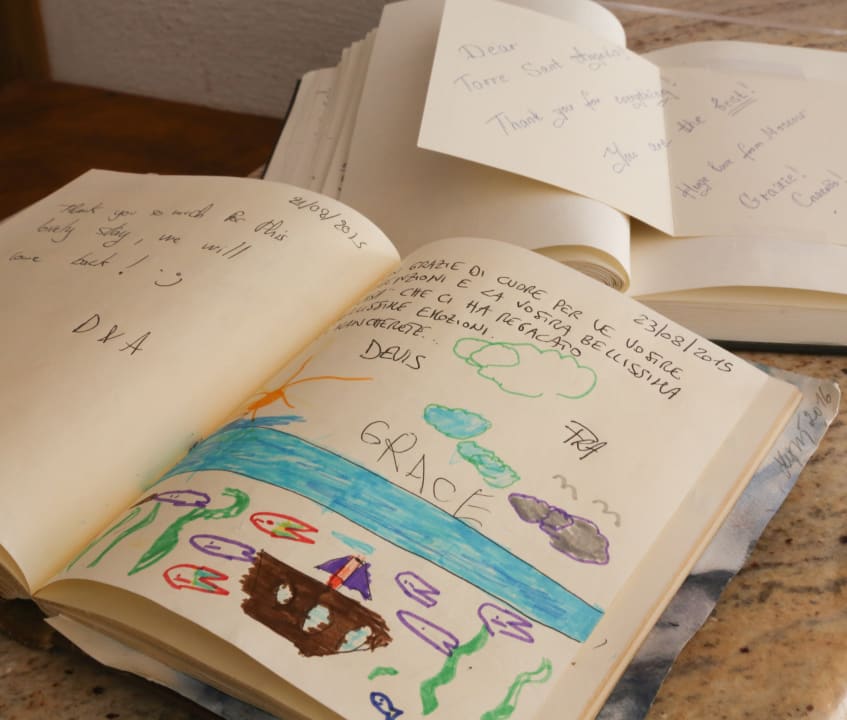 21/08/2015
Thank you so much for this
lovely stay, we will
come back!
D & A
23/08/2015
GRAZIE DI CUORE PER LE VOSTRE
E LA VOSTRA BELLISSIMA
CHE CI HA REGALATO
EMOZIONI.
DEVIS
FRA
GRACE
Dear
Torre Sant
Thank you for everything!
You are the best!
Huge love from
Grazie!
2016